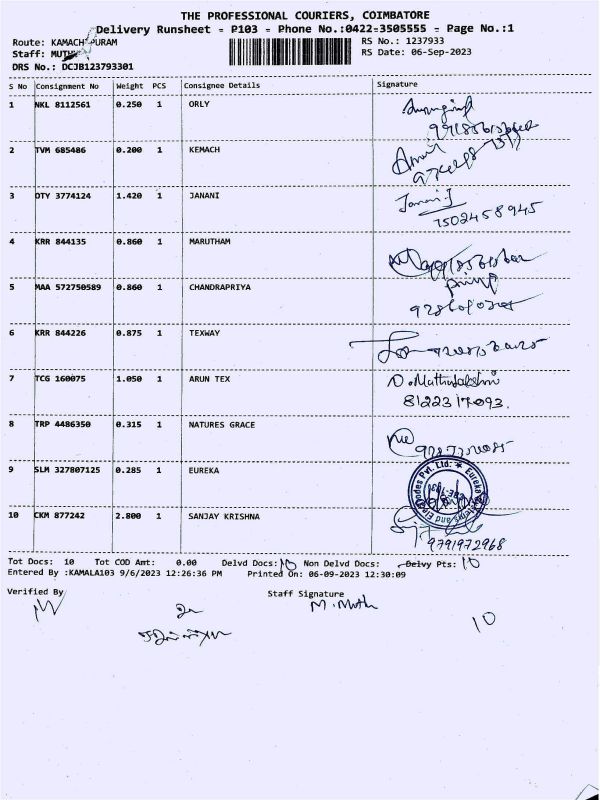 THE PROFESSIONAL COURIERS, COIMBATORE
Delivery Runsheet - P103 - Phone No.:0422-3505555 - Page No.:1
Route: KAMACH PURAM
RS No.: 1237933
Staff: MUTH
RS Date: 06-Sep-2023
DRS No.: DCJB123793301
S No Consignment No Weight PCS Consignee Details Signature
1 NKL 8112561 0.250 1 ORLY
2 TVM 685486 0.200 1 KEMACH
3 OTY 3774124 1.420 1 JANANI Janani J
7502458945
4 KRR 844135 0.860 1 MARUTHAM
5 MAA 572750589 0.860 1 CHANDRAPRIYA
6 KRR 844226 0.875 1 TEXWAY
7 TCG 160075 1.050 1 ARUN TEX D. Muthulakshmi
8122317093.
8 TRP 4486350 0.315 1 NATURES GRACE
9 SLM 327807125 0.285 1 EUREKA
10 CKM 877242 2.800 1 SANJAY KRISHNA
9791972968
Tot Docs: 10 Tot COD Amt: 0.00 Delvd Docs: 10 Non Delvd Docs: Delvy Pts: 10
Entered By :KAMALA103 9/6/2023 12:26:36 PM Printed On: 06-09-2023 12:30:09
Verified By
Staff Signature
M. Muth
10